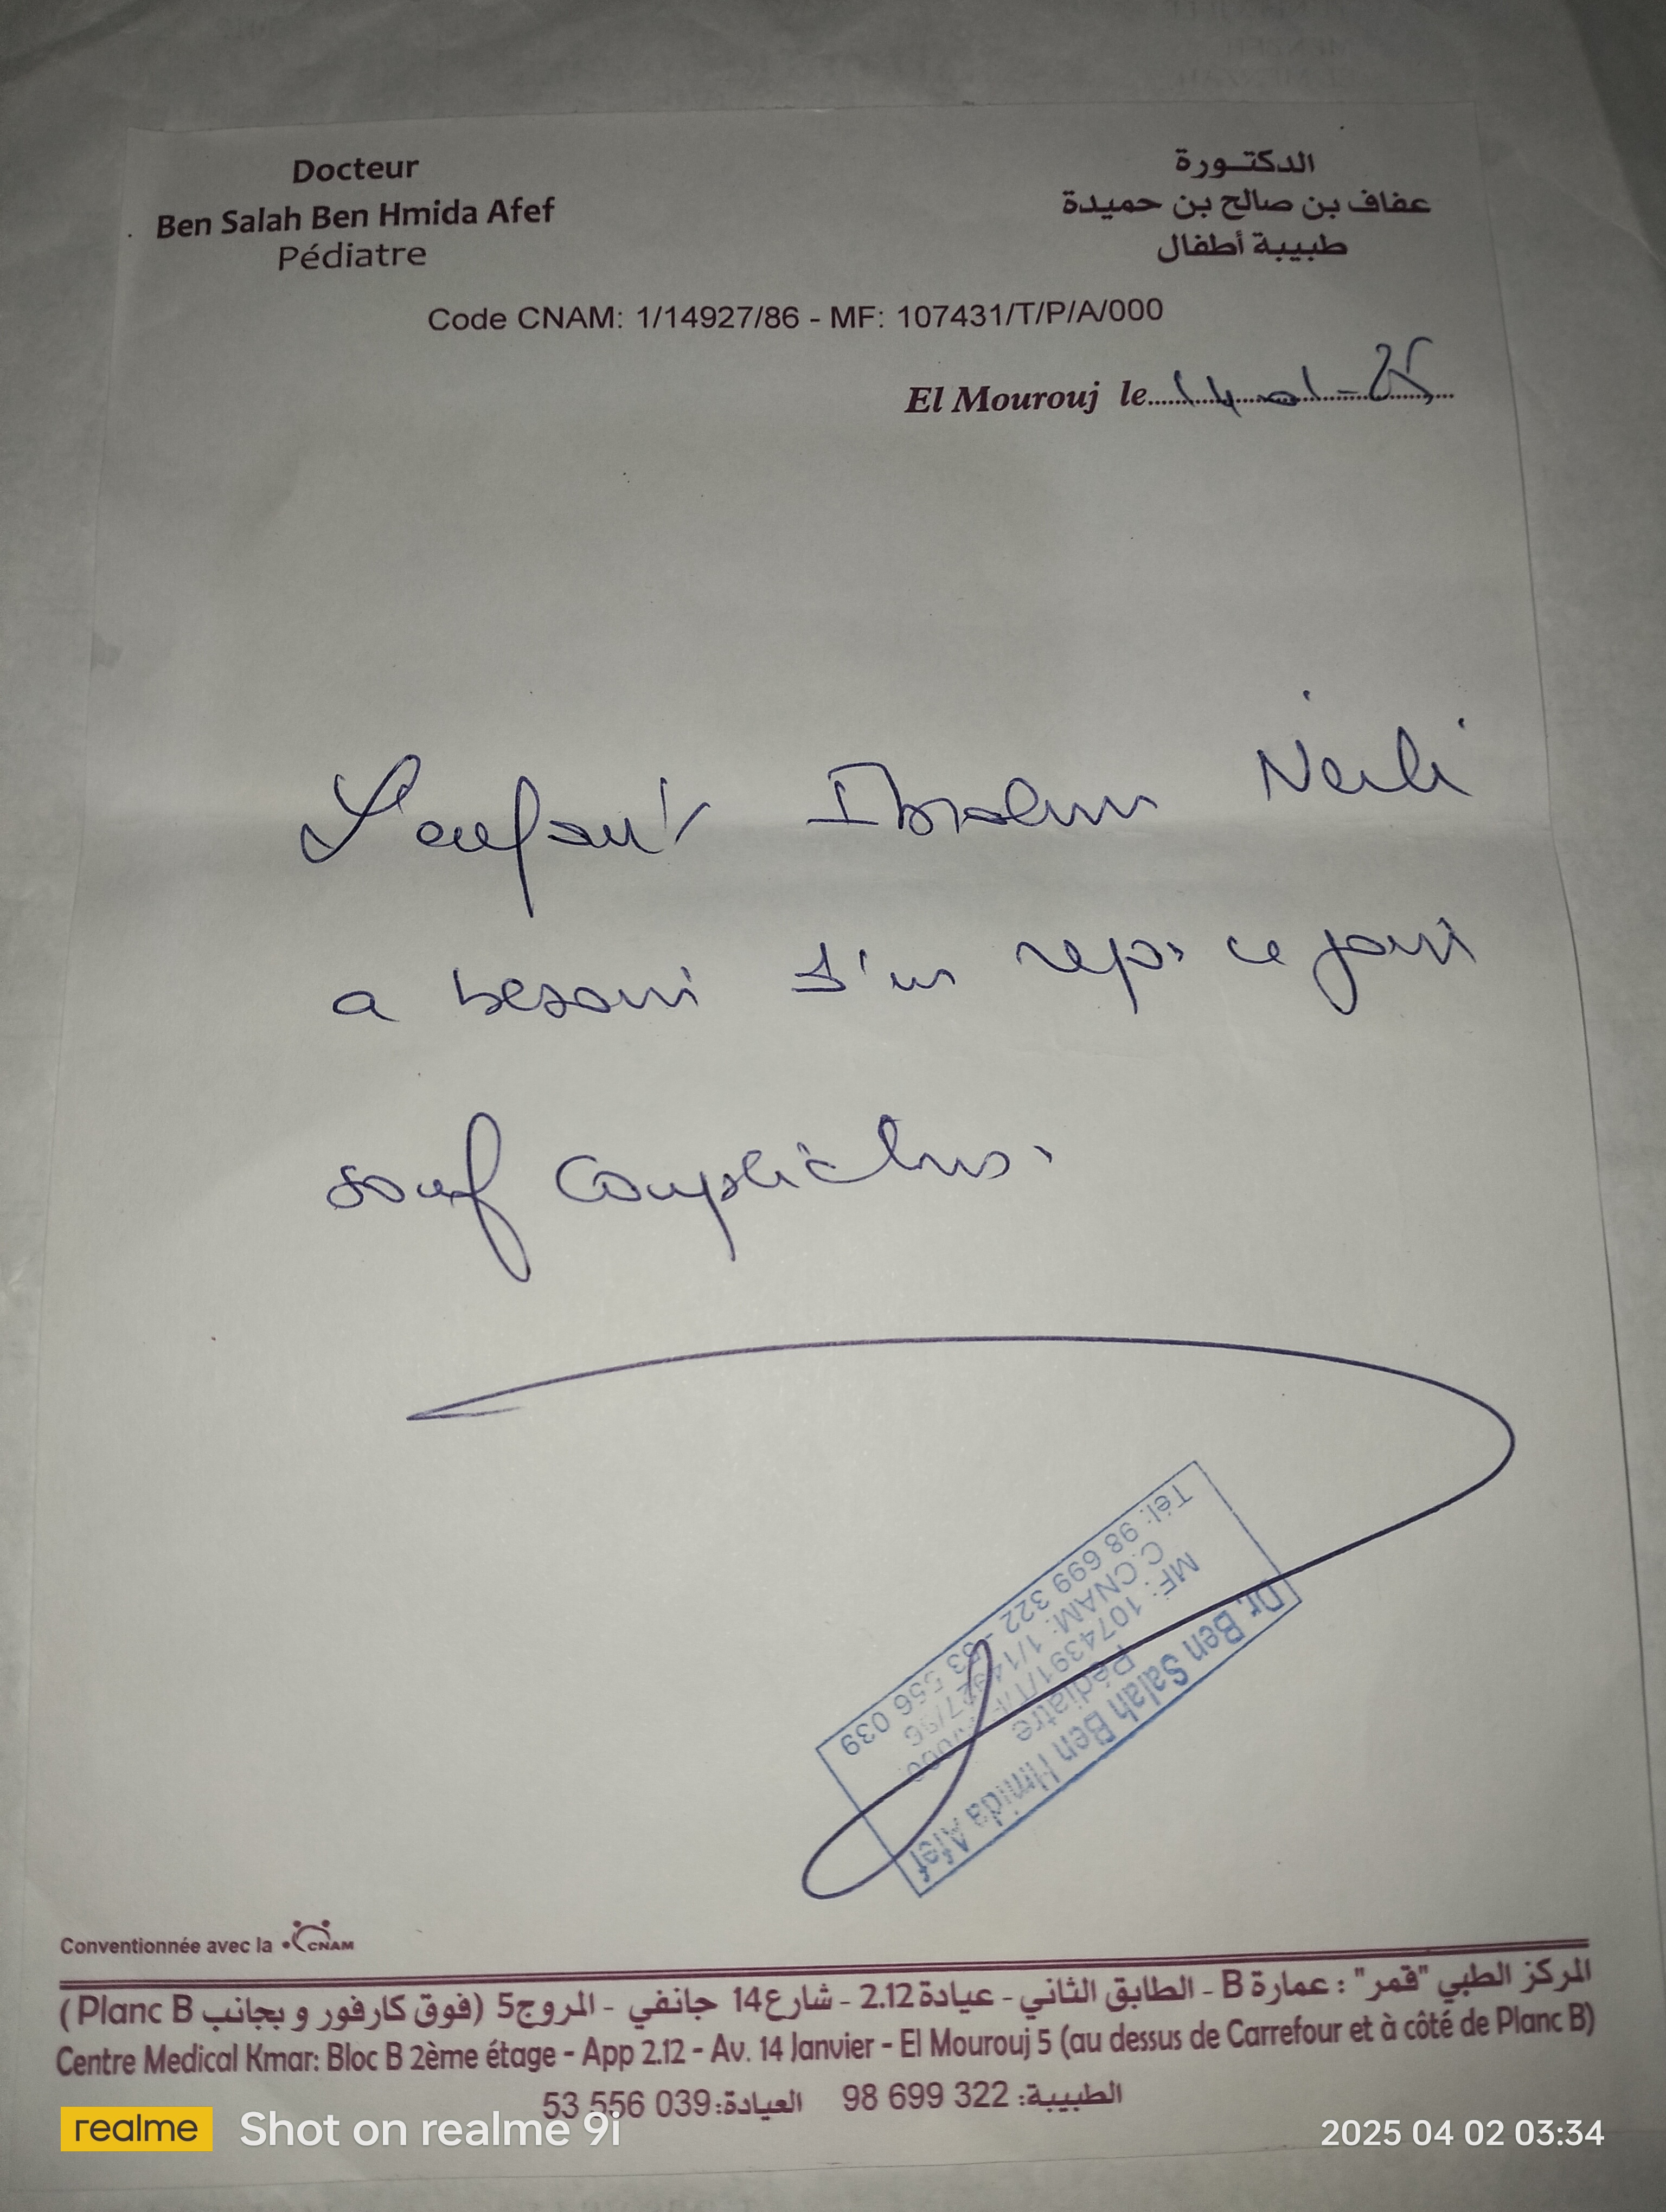 Docteur
Ben Salah Ben Hmida Afef
Pédiatre
الدكتــورة
عفاف بن صالح بن حميدة
طبيبة أطفال
Code CNAM: 1/14927/86 - MF: 107431/T/P/A/000
El Mourouj le 14-01-25
L'enfant Ibrahim
a besoin d'un repos ce jour
sauf complications
Dr. Ben Salah Ben Hmida Afef
Pédiatre
MF: 1074391/T/P/A/000
C.CNAM: 1/14927/86
Tél: 98 699 322 - 53 556 039
Conventionnée avec la CNAM
المركز الطبي "قمر" : عمارة B - الطابق الثاني - عيادة 2.12 - شارع 14 جانفي - المروج5 (فوق كارفور و بجانب Planc B)
Centre Medical Kmar: Bloc B 2ème étage - App 2.12 - Av. 14 Janvier - El Mourouj 5 (au dessus de Carrefour et à côté de Planc B)
الطبيبة: 98 699 322 العيادة: 53 556 039
realme Shot on realme 9i
2025 04 02 03:34